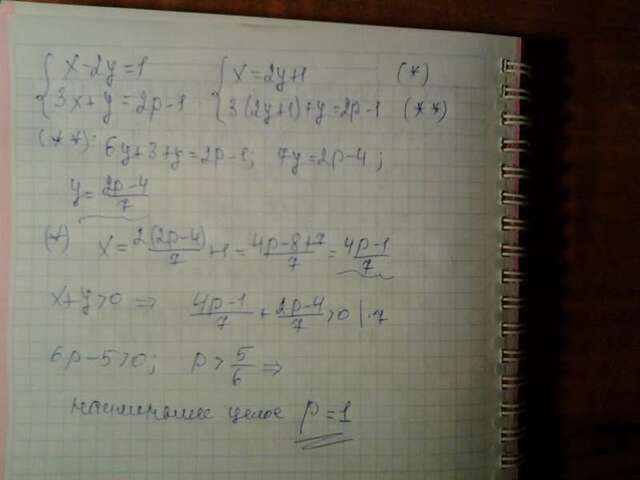 { x-2y=1   { x=2y+1   (*)
{ 3x+y=2p-1   { 3(2y+1)+y=2p-1   (**)
(**): 6y+3+y=2p-1; 7y=2p-4;
y=(2p-4)/7
(*) x=2(2p-4)/7+1=(4p-8+7)/7=(4p-1)/7
x+y>0 ⇒ (4p-1)/7+(2p-4)/7>0 |·7
6p-5>0; p>5/6 ⇒
наименьшее целое p=1